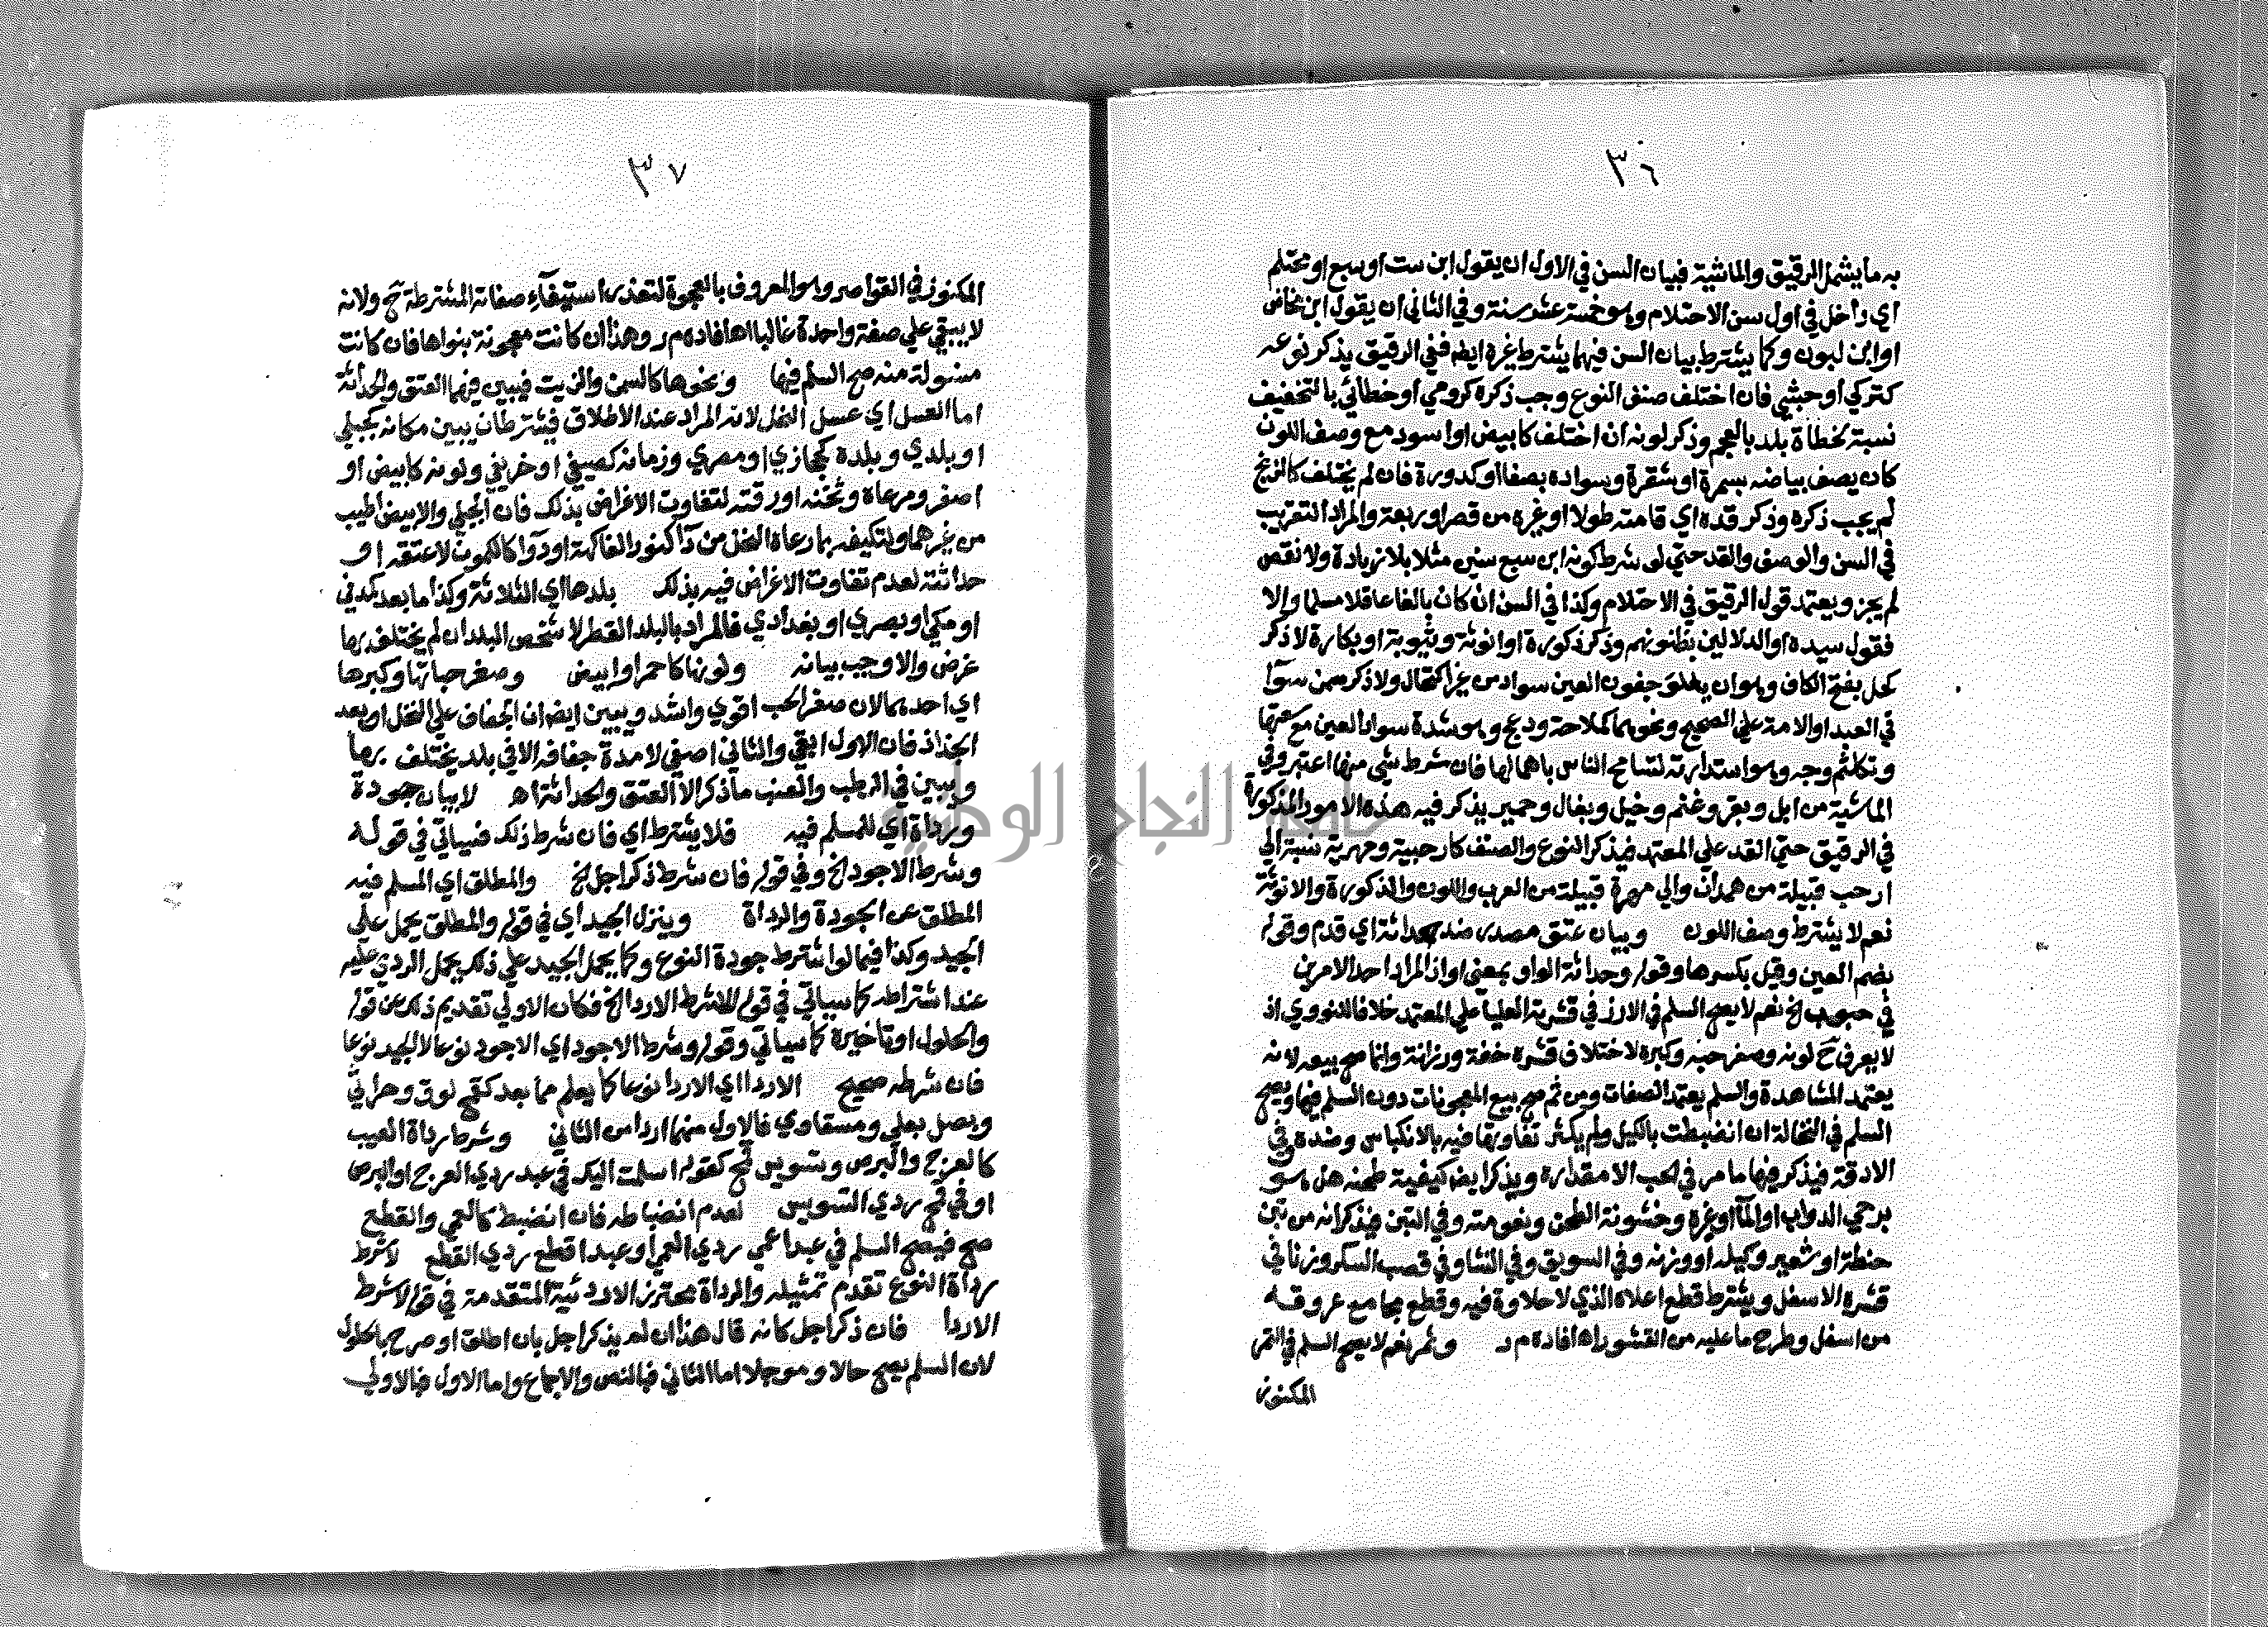 ٣٦
به ما يشمل الرقيق والماشية فبيان السن في الاول ان يقول ابن ست او سبع او محتلم
اي داخل في اول سن الاحتلام وهو خمسة عشر سنة وفي الثاني ان يقول ابن مخاض
او ابن لبون وكما يشترط بيان السن فيهما يشترط غيره ايضا ففي الرقيق يذكر نوعه
كتركي او حبشي فان اختلف صنف النوع وجب ذكره كرومي او خطائي بالتخفيف
نسبة لخطاة بلد بالعجم وذكر لونه ان اختلف كابيض او اسود مع وصف اللون
كان يصف بياضه بسمرة او شقرة وسواده بصفا او كدورة فان لم يختلف كالزنج
لم يجب ذكره وذكر قده اي قامته طولا او غيره من قصر او ربعة والمراد التقريب
في السن والوصف والقد حتى لو شرط كونه ابن سبع سنين مثلا بلا زيادة ولا نقص
لم يجز ويعتمد قول الرقيق في الاحتلام وكذا في السن ان كان بالغا عاقلا مسلما والا
فقول سيده او الدلالين بظنونهم وذكر ذكورة او انوثة وثيوبة او بكارة لا ذكر
كحل بفتح الكاف وهو ان يعلو جفون العين سواد من غير اكتحال ولا ذكر سمن سوآ
في العبد او الامة علي الصحيح ونحوهما كملاحة ودعج وهو شدة سواد العين مع سعتها
وتكلثم وجه وهو استدارته لتسامح الناس باهمالها فان شرط شي منها اعتبر وفي
الماشية من ابل وبقر وغنم وخيل وبغال وحمير يذكر فيه هذه الامور المذكورة
في الرقيق حتى القد علي المعتمد فيذكر النوع والصنف كارحبية ومهرية نسبة الي
ارحب قبيلة من همدان والي مهرة قبيلة من العرب واللون والذكورة والانوثة
نعم لا يشترط وصف اللون وبيان عتق مصدر ضد حداثة اي قدم وقوله
بضم العين وقيل بكسرها وقوله وحداثة الواو بمعنى او اذ المراد احد الامرين
في حبوب الخ نعم لا يصح السلم في الارز في قشرته العليا علي المعتمد خلافا للنووي اذ
لا يعرف ح لونه وصغر حبه وكبره لاختلاف قشره خفة ورزانة وانما صح بيعه لانه
يعتمد المشاهدة والسلم يعتمد الصفات ومن ثم صح بيع المعجونات دون السلم فيها ويصح
السلم في النخالة ان انضبطت بالكيل ولم يكثر تفاوتها فيه بالانكباس وضده وفي
الادقة فيذكر فيها ما مر في الحب الا مقداره ويذكر ايضا كيفية طحنه هل هو
برحي الدواب او المآ او غيره وخشونة الطحن ونعومته وفي التبن فيذكر انه من تبن
حنطة او شعير وكيله او وزنه وفي السويق وفي النشا وفي قصب السكر وزنا في
قشره الاسفل ويشترط قطع اعلاه الذي لا حلاوة فيه وقطع مجامع عروقه
من اسفل وطرح ما عليه من القشور اه افاده م ر وثمر نعم لا يصح السلم في التمر
المكنوز
٣٧
المكنوز في القواصر وهو المعروف بالعجوة لتعذر استيفآء صفاته المشترطة ح ولانه
لا يبقي علي صفة واحدة غالبا اه افاده م ر وهذا ان كانت معجونة بنواها فان كانت
منسولة منه صح السلم فيها ونحوها كالسمن والزيت فيبين فيهما العتق والحداثة
اما العسل اي عسل النحل لانه المراد عند الاطلاق فيشترط ان يبين مكانه كجبلي
او بلدي وبلده كحجازي او مصري وزمانه كصيفي او خريفي ولونه كابيض او
اصفر ومرعاة وثخنه او رقته لتفاوت الاغراض بذلك فان الجبلي والابيض اطيب
من غيرهما ولتكيفه بما رعاه النحل من دآ كنور الفاكهة او دوآ كالكمون لا عتقه او
حداثته لعدم تفاوت الاغراض فيه بذلك بلدها اي الثلاثة وكذا ما بعد كمدني
او مكي او بصري او بغدادي فالمراد بالبلد القطر لا شخص البلد ان لم يختلف بها
غرض والا وجب بيانه ولونها كاحمر او ابيض وصغر حباتها وكبرها
اي احدهما لان صغر الحب اقوي واشد ويبين ايضا ان الجفاف علي النخل او بعد
الجذاذ فان الاول ابقي والثاني اصفي لا مدة جفافه الا في بلد يختلف بها
ويبين في الرطب والعنب ما ذكر الا العتق والحداثة اه لا بيان جودة
ورداة اي للمسلم فيه فلا يشترط اي فان شرط ذلك فسياتي في قوله
وشرط الاجود الخ وفي قوله فان شرط ذكر اجل الخ والمطلق اي المسلم فيه
المطلق عن الجودة والرداة وينزل الجيد اي في قوله والمطلق يحمل علي
الجيد وكذا فيما لو اشترط جودة النوع وكما يحمل الجيد علي ذلك يحمل الردي عليه
عند اشتراطه كما سياتي في قوله لا شرط الاردا الخ فكان الاولي تقديم ذلك عن قوله
والحلول او تاخيره كما سياتي وقوله وشرط الاجود اي الاجود نوعا لا الجيد نوعا
فان شرطه صحيح الاردا اي الاردا نوعا كما يعلم مما بعد كقمح لوق وحراتي
وبصل بعلي ومسقاوي فالاول منهما اردا من الثاني وشرط رداة العيب
كالعرج والبرص وتسويس قمح كقوله اسلمت اليك في عبد ردي العرج او البرص
او في قمح ردي التسويس لعدم انضباطه فان انضبط كالعمي والقطع
صح فيصح السلم في عبد اعمي ردي العمي او عبد اقطع ردي القطع لا شرط
رداة النوع تقدم تمثيله والرداة محترز الاردئية المتقدمة في قوله لا شرط
الاردا فان ذكر اجل كانه قال هذا ان لم يذكر اجل بان اطلق او صرح بالحلول
لان السلم يصح حالا وموجلا اما الثاني فبالنص والاجماع واما الاول فبالاولي
جامعة النجاح الوطنية